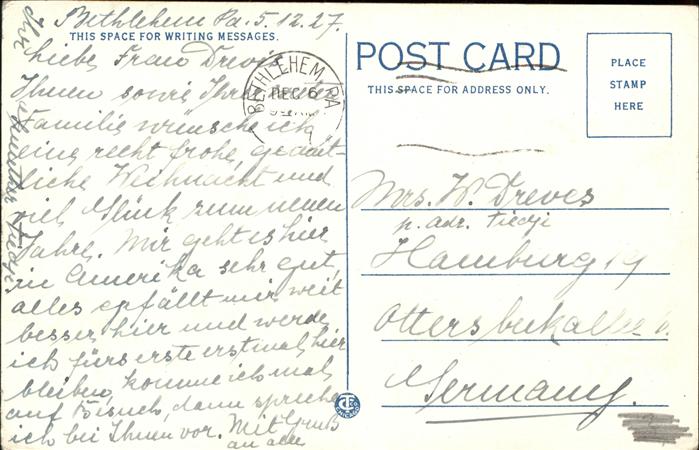 Bethlehem Pa. 5.12.27.
THIS SPACE FOR WRITING MESSAGES.
Liebe Frau Dreves
Ihnen sowie Ihrer
Familie wünsche ich
eine recht frohe, gemüt-
liche Weihnacht und
viel Glück zum neuen
Jahre. Mir geht es hier
in Amerika sehr gut,
alles gefällt mir weit
besser hier und werde
ich fürs erste erstmal hier
bleiben, komme ich mal
auf Besuch, dann spreche
ich bei Ihnen vor. Mit Gruß
an alle
Ihr
BETHLEHEM, PA
DEC 6
POST CARD
THIS SPACE FOR ADDRESS ONLY.
PLACE
STAMP
HERE
Mrs. W. Dreves
p. adr.
Hamburg 19
Germany.